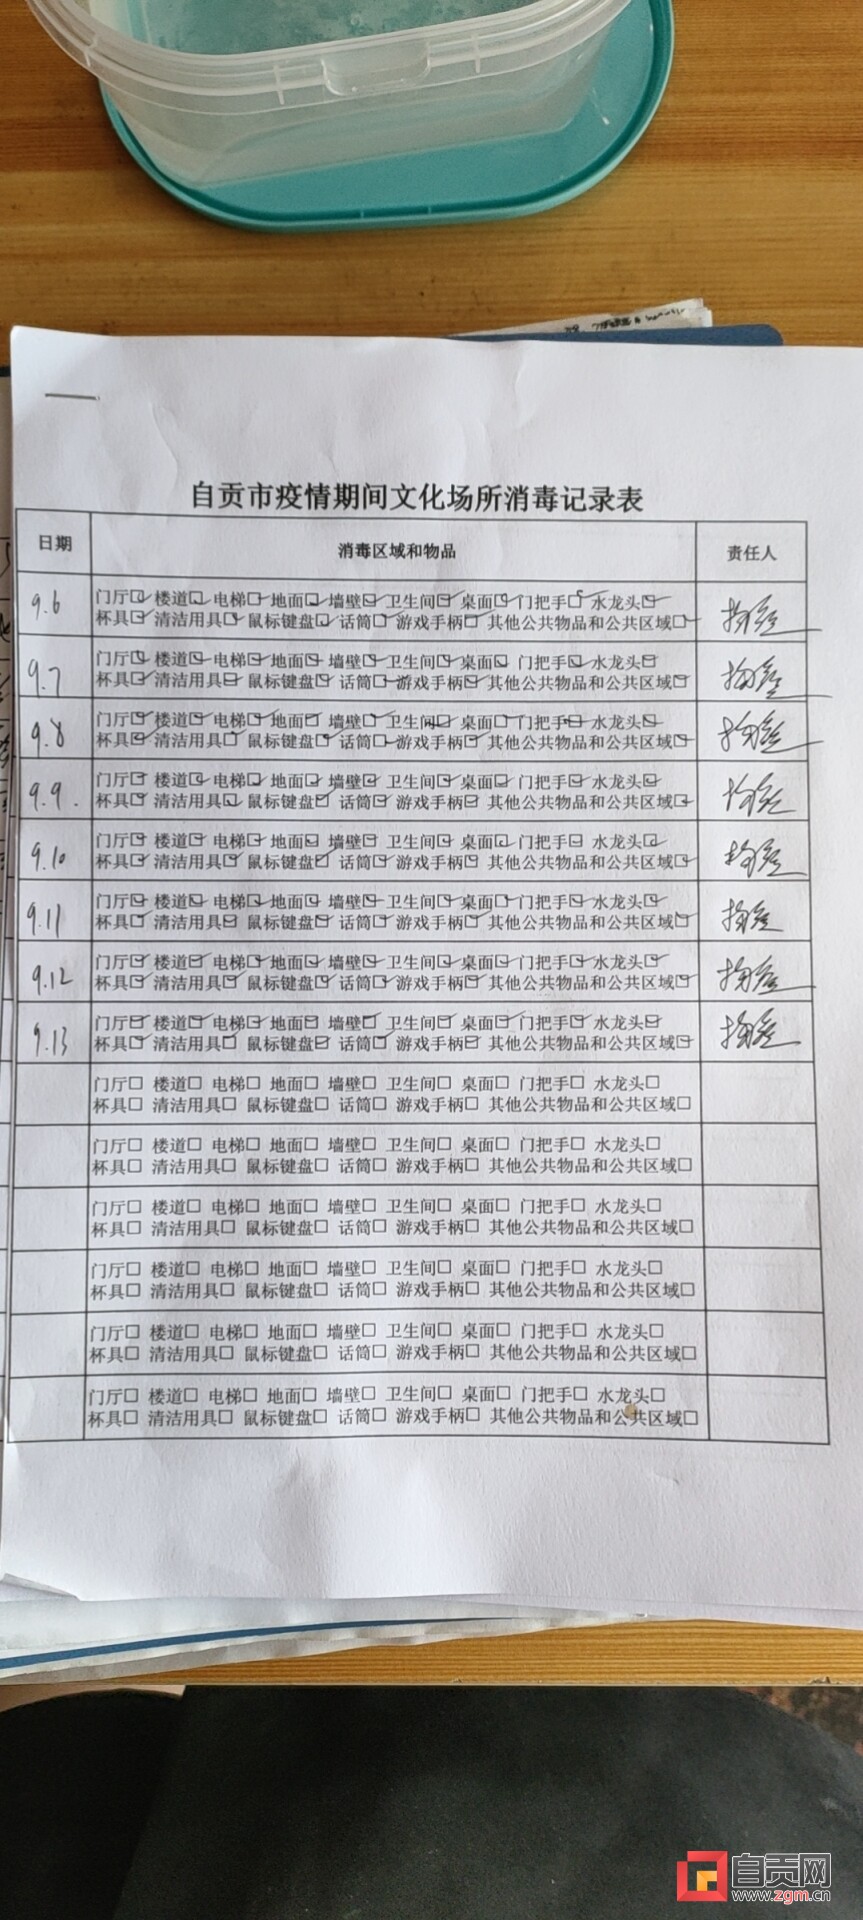 自贡市疫情期间文化场所消毒记录表
日期 消毒区域和物品 责任人
9.6 门厅☑ 楼道☑ 电梯☑ 地面☑ 墙壁☑ 卫生间☑ 桌面☑ 门把手☑ 水龙头☑
杯具☑ 清洁用具☑ 鼠标键盘☑ 话筒☑ 游戏手柄☑ 其他公共物品和公共区域☑
9.7 门厅☑ 楼道☑ 电梯☑ 地面☑ 墙壁☑ 卫生间☑ 桌面☑ 门把手☑ 水龙头☑
杯具☑ 清洁用具☑ 鼠标键盘☑ 话筒☑ 游戏手柄☑ 其他公共物品和公共区域☑
9.8 门厅☑ 楼道☑ 电梯☑ 地面☑ 墙壁☑ 卫生间☑ 桌面☑ 门把手☑ 水龙头☑
杯具☑ 清洁用具☑ 鼠标键盘☑ 话筒☑ 游戏手柄☑ 其他公共物品和公共区域☑
9.9. 门厅☑ 楼道☑ 电梯☑ 地面☑ 墙壁☑ 卫生间☑ 桌面☑ 门把手☑ 水龙头☑
杯具☑ 清洁用具☑ 鼠标键盘☑ 话筒☑ 游戏手柄☑ 其他公共物品和公共区域☑
9.10 门厅☑ 楼道☑ 电梯☑ 地面☑ 墙壁☑ 卫生间☑ 桌面☑ 门把手☑ 水龙头☑
杯具☑ 清洁用具☑ 鼠标键盘☑ 话筒☑ 游戏手柄☑ 其他公共物品和公共区域☑
9.11 门厅☑ 楼道☑ 电梯☑ 地面☑ 墙壁☑ 卫生间☑ 桌面☑ 门把手☑ 水龙头☑
杯具☑ 清洁用具☑ 鼠标键盘☑ 话筒☑ 游戏手柄☑ 其他公共物品和公共区域☑
9.12 门厅☑ 楼道☑ 电梯☑ 地面☑ 墙壁☑ 卫生间☑ 桌面☑ 门把手☑ 水龙头☑
杯具☑ 清洁用具☑ 鼠标键盘☑ 话筒☑ 游戏手柄☑ 其他公共物品和公共区域☑
9.13 门厅☑ 楼道☑ 电梯☑ 地面☑ 墙壁☑ 卫生间☑ 桌面☑ 门把手☑ 水龙头☑
杯具☑ 清洁用具☑ 鼠标键盘☑ 话筒☑ 游戏手柄☑ 其他公共物品和公共区域☑
门厅□ 楼道□ 电梯□ 地面□ 墙壁□ 卫生间□ 桌面□ 门把手□ 水龙头□
杯具□ 清洁用具□ 鼠标键盘□ 话筒□ 游戏手柄□ 其他公共物品和公共区域□
门厅□ 楼道□ 电梯□ 地面□ 墙壁□ 卫生间□ 桌面□ 门把手□ 水龙头□
杯具□ 清洁用具□ 鼠标键盘□ 话筒□ 游戏手柄□ 其他公共物品和公共区域□
门厅□ 楼道□ 电梯□ 地面□ 墙壁□ 卫生间□ 桌面□ 门把手□ 水龙头□
杯具□ 清洁用具□ 鼠标键盘□ 话筒□ 游戏手柄□ 其他公共物品和公共区域□
门厅□ 楼道□ 电梯□ 地面□ 墙壁□ 卫生间□ 桌面□ 门把手□ 水龙头□
杯具□ 清洁用具□ 鼠标键盘□ 话筒□ 游戏手柄□ 其他公共物品和公共区域□
门厅□ 楼道□ 电梯□ 地面□ 墙壁□ 卫生间□ 桌面□ 门把手□ 水龙头□
杯具□ 清洁用具□ 鼠标键盘□ 话筒□ 游戏手柄□ 其他公共物品和公共区域□
门厅□ 楼道□ 电梯□ 地面□ 墙壁□ 卫生间□ 桌面□ 门把手□ 水龙头□
杯具□ 清洁用具□ 鼠标键盘□ 话筒□ 游戏手柄□ 其他公共物品和公共区域□
自贡网
www.zgm.cn